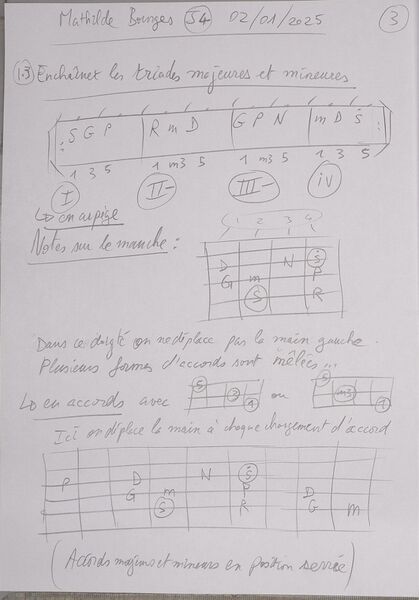 Mathilde Bourges S4 02/01/2025 3
1.3 Enchaîner les triades majeures et mineures
: S G P R m D G P N m D Ṡ :
1 3 5 1 m3 5 1 m3 5 1 3 5
I II- III- IV
↳ en arpège
Notes sur le manche :
1 2 3 4
D N Ṡ
G m P
S R
Dans ce doigté on ne déplace pas la main gauche.
Plusieurs formes d'accords sont mêlées...
↳ en accords avec 5 3 1 ou 5 m3 1
Ici on déplace la main à chaque changement d'accord
P D N Ṡ
G m P D
S R G m
(Accords majeurs et mineurs en position serrée)